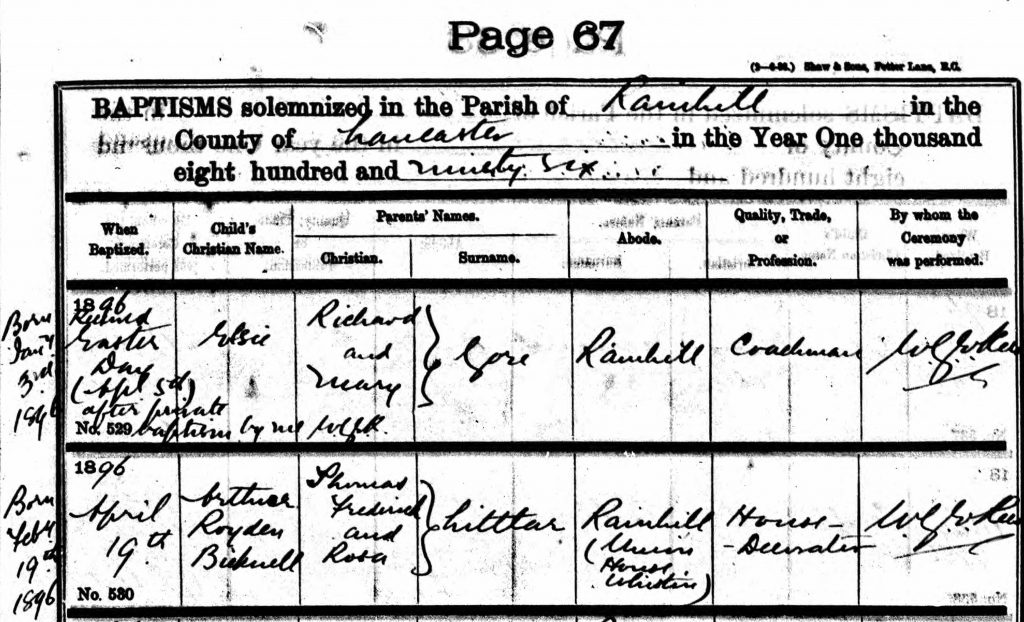 Page 67
(3—4-95.) Shaw & Sons, Fetter Lane, E.C.
BAPTISMS solemnized in the Parish of Rainhill in the
County of Lancaster in the Year One thousand
eight hundred and ninety six
When Baptized.
Child's Christian Name.
Parents' Names.
Christian.
Surname.
Abode.
Quality, Trade, or Profession.
By whom the Ceremony was performed.
Born
Jany
3rd
1896
1896
Easter
Day
(Apl 5th)
after private
baptism by me
No. 529
Elsie
Richard
and
Mary
Gore
Rainhill
Coachman
Born
Feby
19th
1896
1896
April
19th
No. 530
Arthur
Royden
Bicknell
Thomas
Frederick
and
Rosa
Rainhill
House
House-
-Decorator